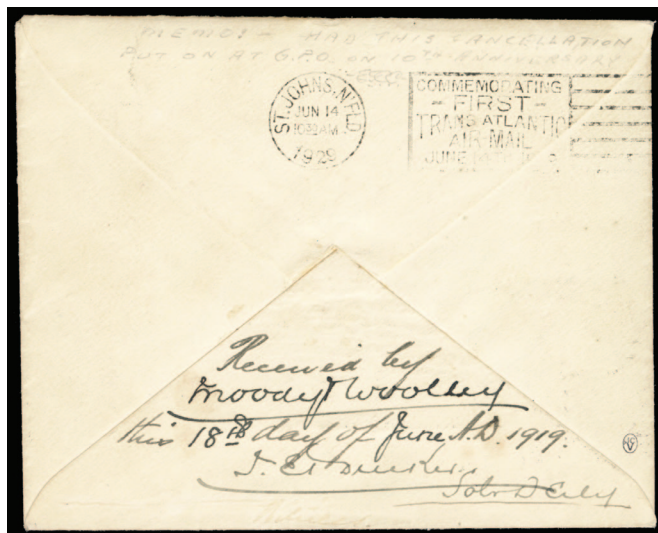 MEMO: - HAD THIS CANCELLATION
PUT ON AT G.P.O. ON 10TH ANNIVERSARY
ST. JOHNS, N'FLD.
JUN 14
10 30 AM
1929
COMMEMORATING
- FIRST -
TRANS ATLANTIC
AIR-MAIL
JUNE
Received by
Moody & Woolley
this 18th day of June A.D. 1919.